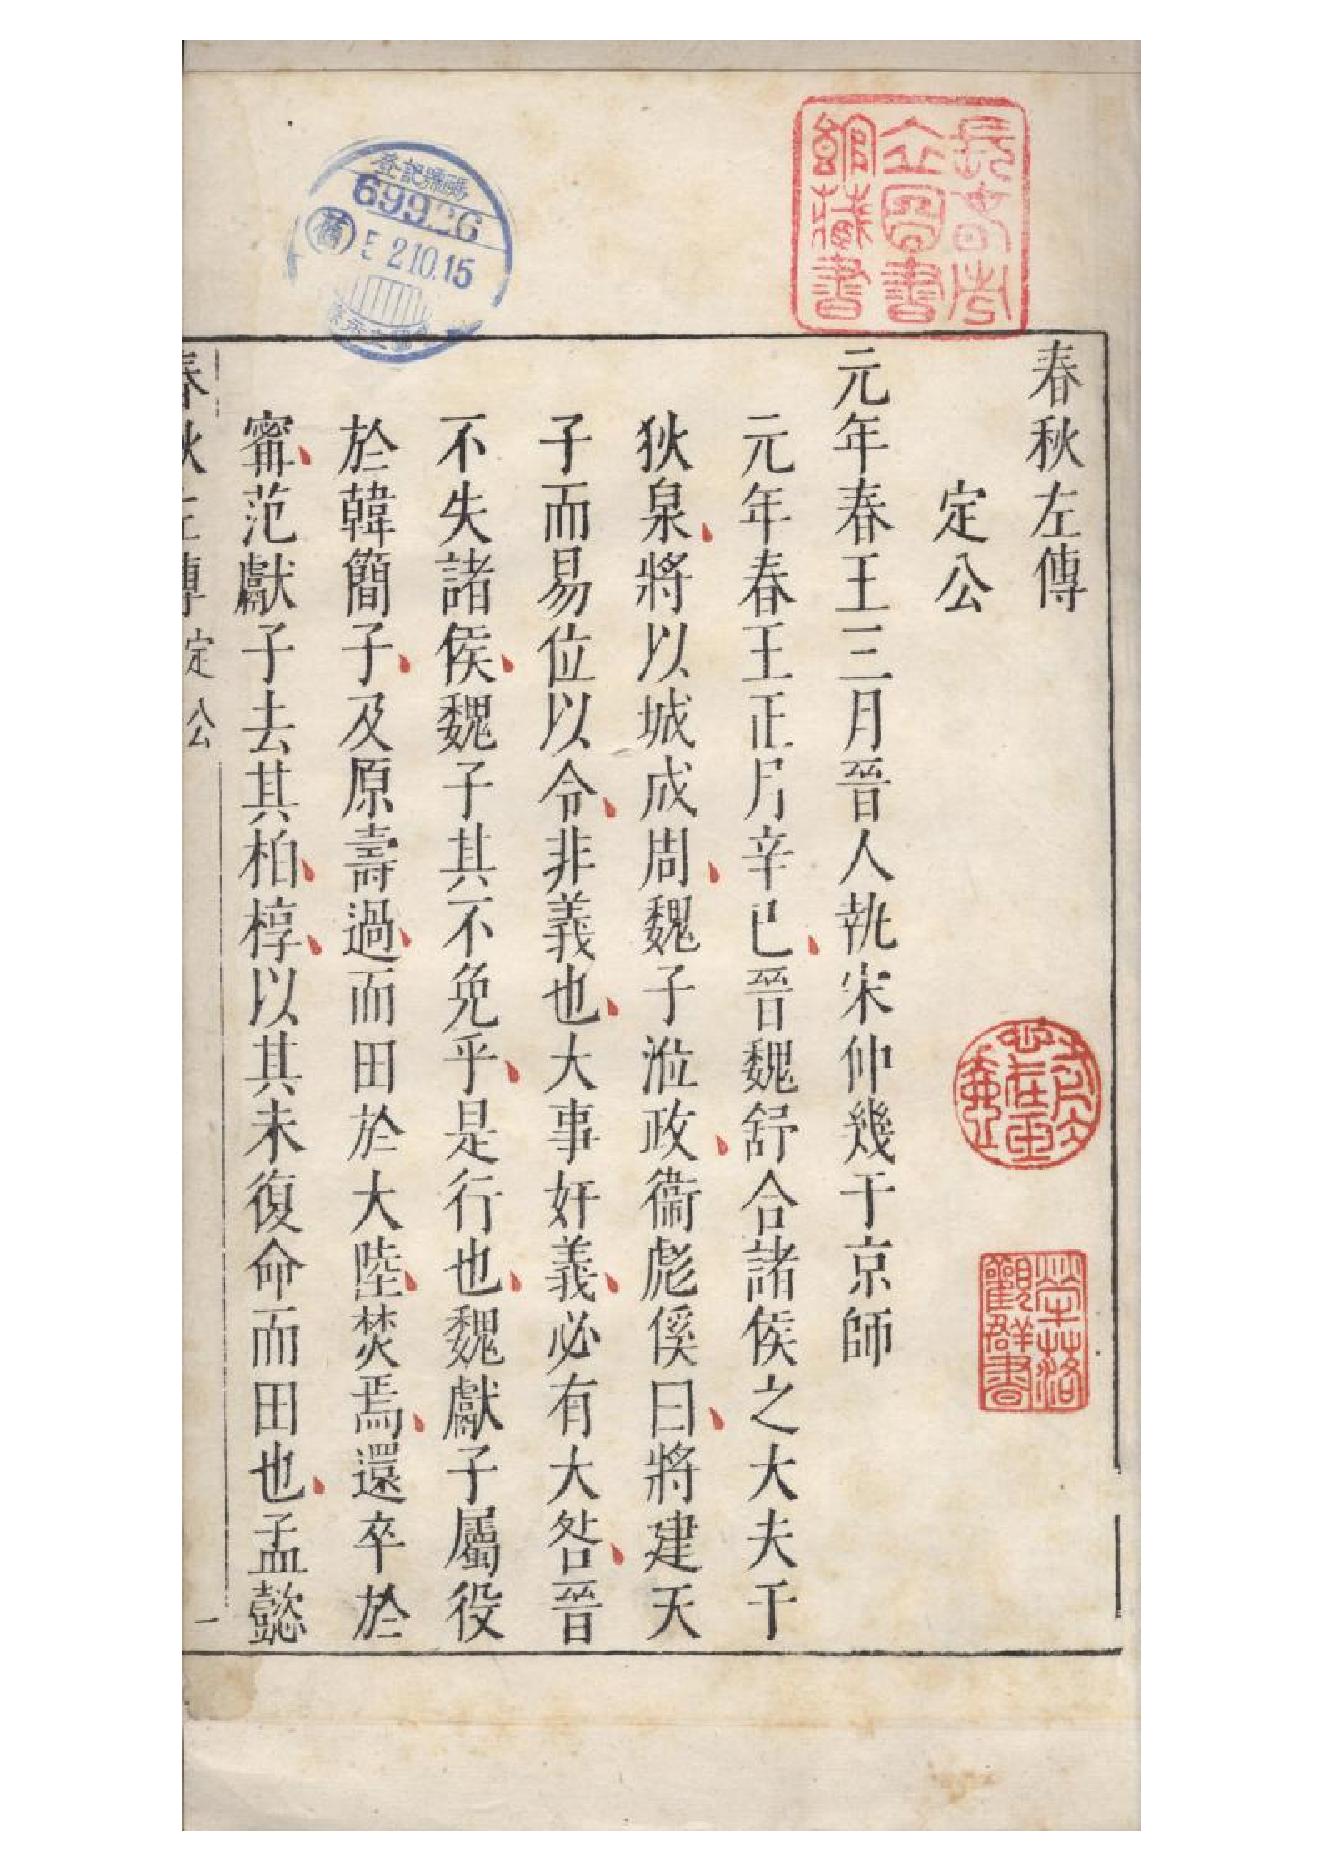 春秋左傳
定公
元年春王三月晉人執宋仲幾于京師
元年春王正月辛巳晉魏舒合諸侯之大夫于
狄泉將以城成周魏子涖政衞彪傒曰將建天
子而易位以令非義也大事奸義必有大咎晉
不失諸侯魏子其不免乎是行也魏獻子屬役
於韓簡子及原壽過而田於大陸焚焉還卒於
甯范獻子去其柏椁以其未復命而田也孟懿
春秋左傳 定公 一
長春市立圖書館藏書
登記號碼
69926
52.10.15
觀群書